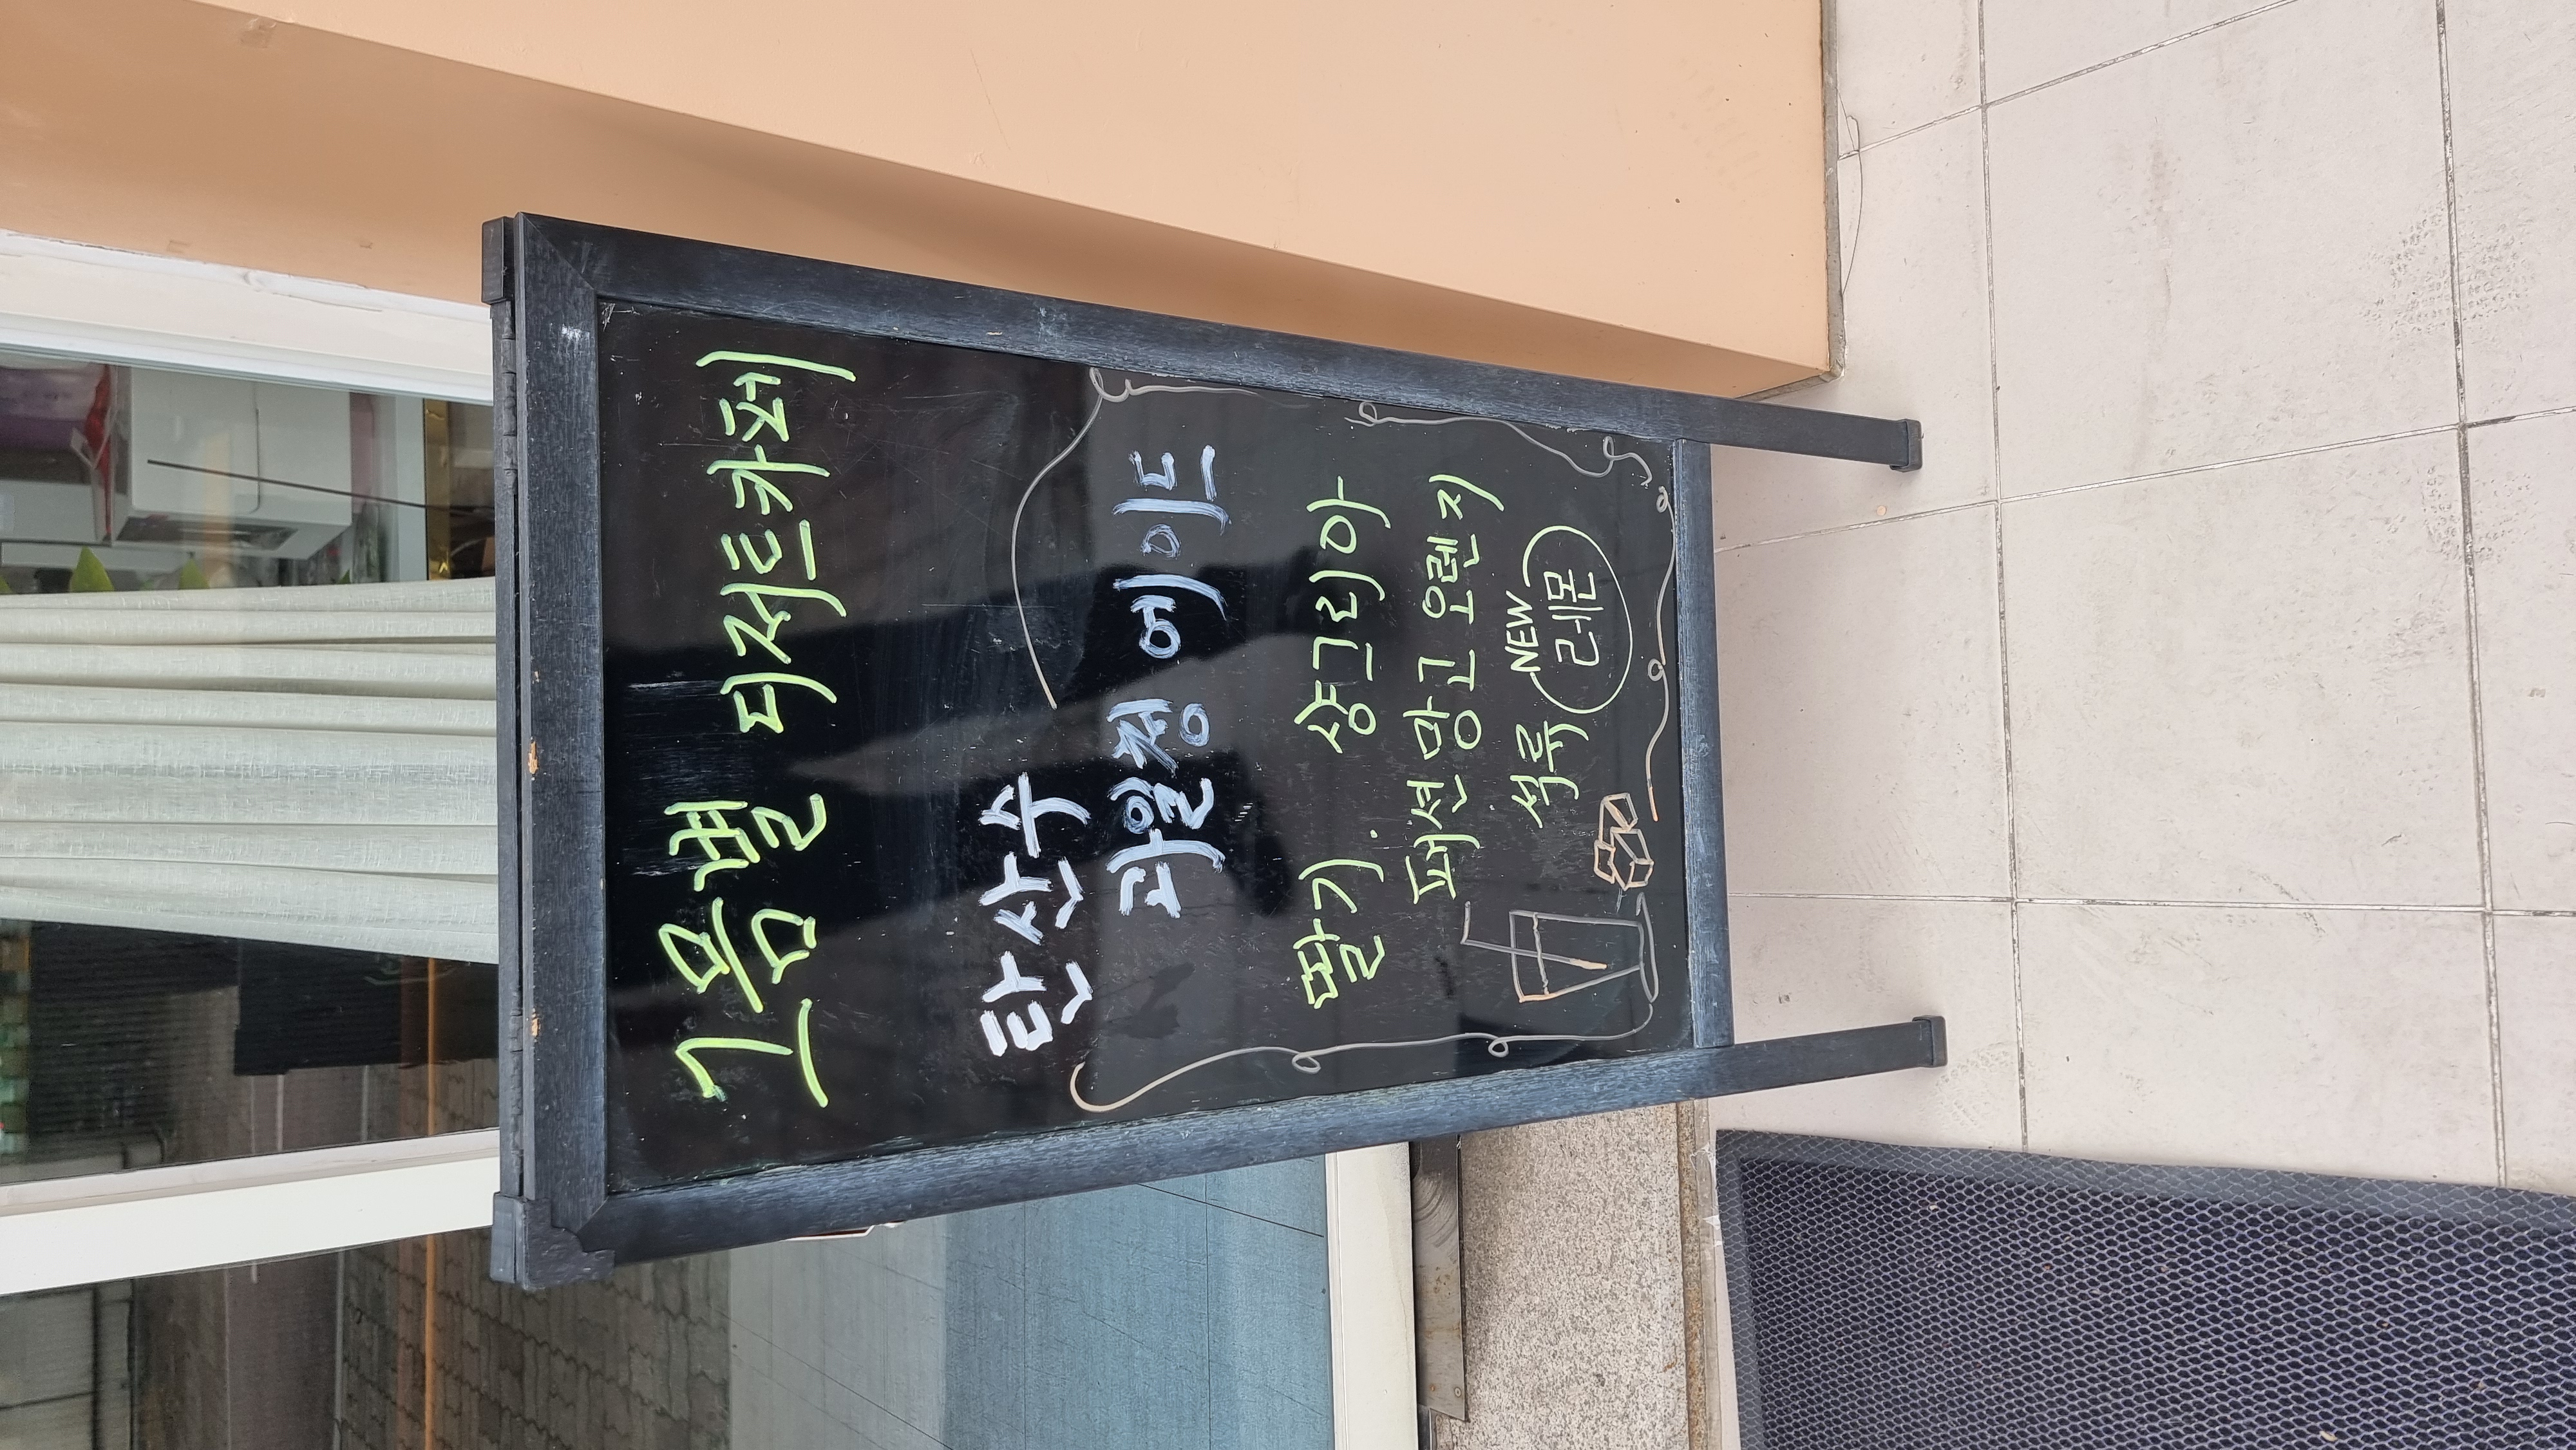 그믐밸 디저트카페
탄산수
과일청 에이드
딸기. 상그리아
패션망고 오렌지
석류 NEW 레몬